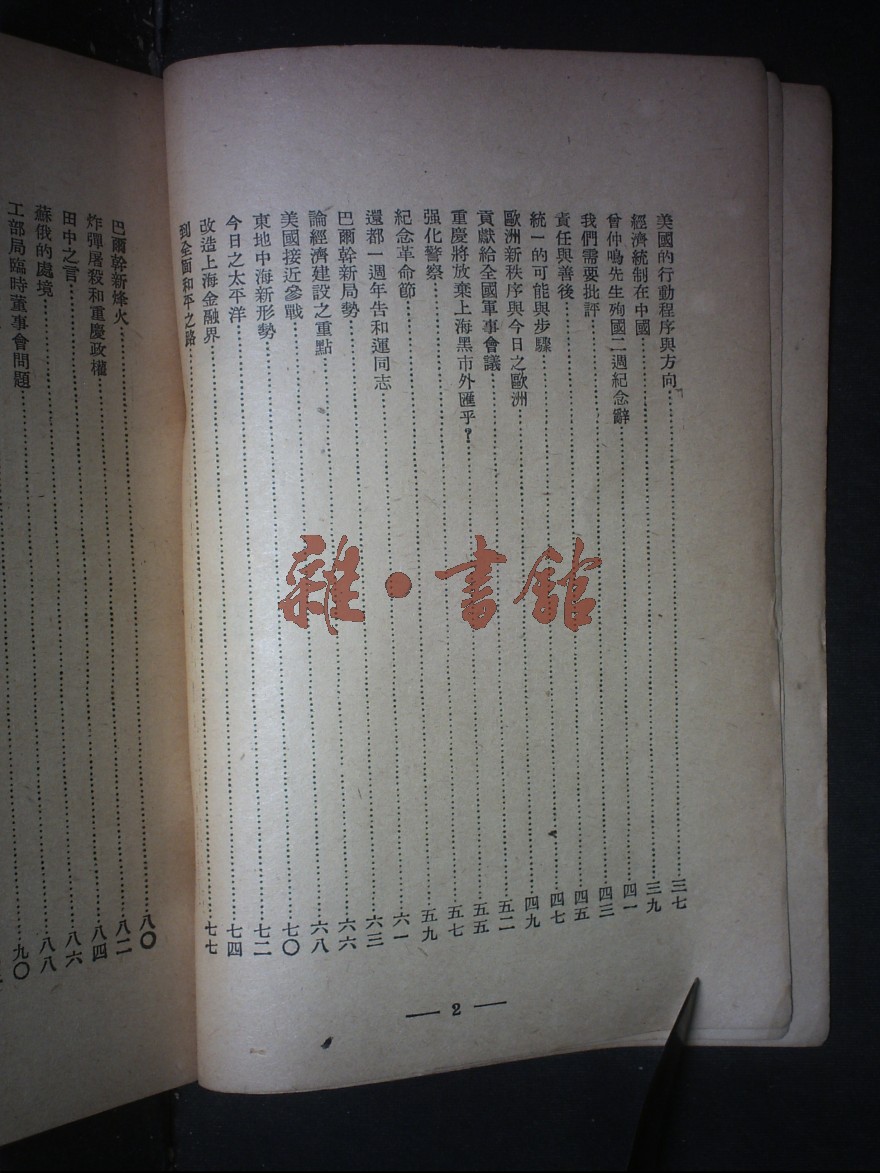 美國的行動程序與方向 三七
經濟統制在中國 三九
曾仲鳴先生殉國二週紀念辭 四一
我們需要批評 四三
責任與善後 四五
統一的可能與步驟 四七
歐洲新秩序與今日之歐洲 四九
貢獻給全國軍事會議 五二
重慶將放棄上海黑市外匯乎? 五五
强化警察 五七
紀念革命節 五九
還都一週年告和運同志 六一
巴爾幹新局勢 六三
論經濟建設之重點 六六
美國接近參戰 六八
東地中海新形勢 七〇
今日之太平洋 七二
改造上海金融界 七四
到全面和平之路 七七
— 2 —
巴爾幹新烽火 八〇
炸彈屠殺和重慶政權 八二
田中之言 八四
蘇俄的處境 八六
工部局臨時董事會問題 八八
九〇
雜·書館